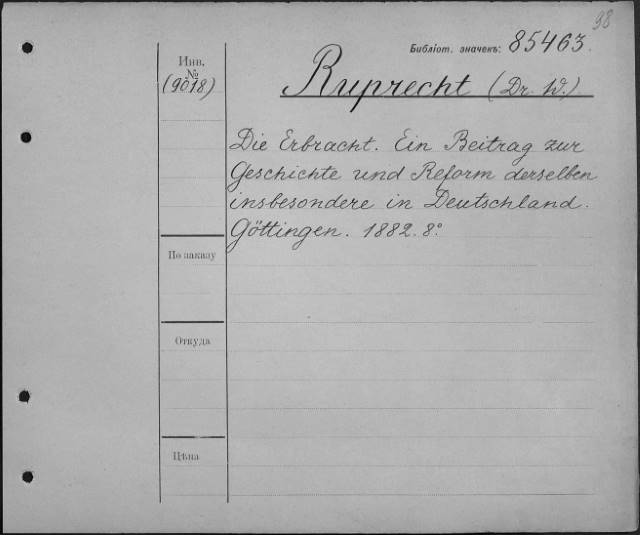 98
Библіот. значекъ: 85463.
Инв.
№
(9018)
Ruprecht (Dr. W.)
Die Erbracht. Ein Beitrag zur
Geschichte und Reform derselben
insbesondere in Deutschland.
Göttingen. 1882. 8°
По заказу
Откуда
Цѣна